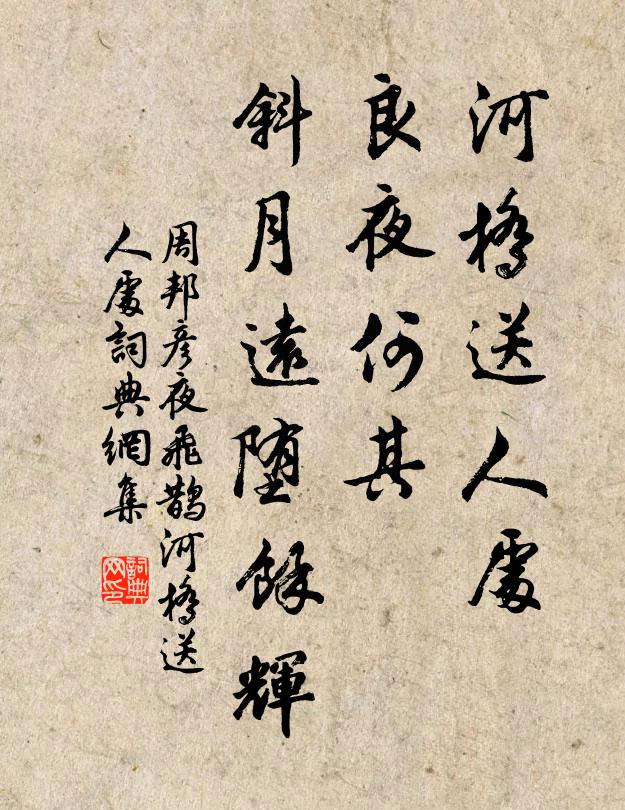 河橋送人處
良夜何其
斜月遠墮餘輝
周邦彥夜飛鵲河橋送
人處詞典網集
詞典
网印